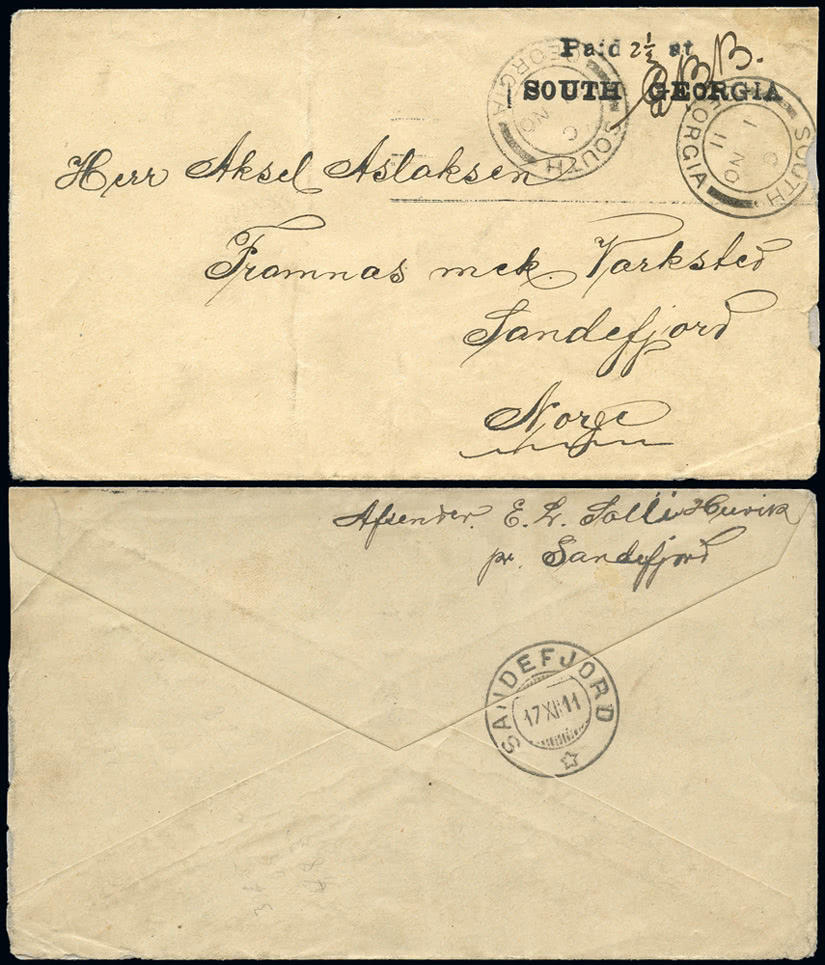 Paid 2½ at
SOUTH GEORGIA
SOUTH GEORGIA
NO
SOUTH GEORGIA
1
NO
11
Herr Aksel Aslaksen
Framnæs mek Værksted
Sandefjord
Norge
Afsender. E. L. Solli
pr. Sandefjord
SANDEFJORD
17 XII 11